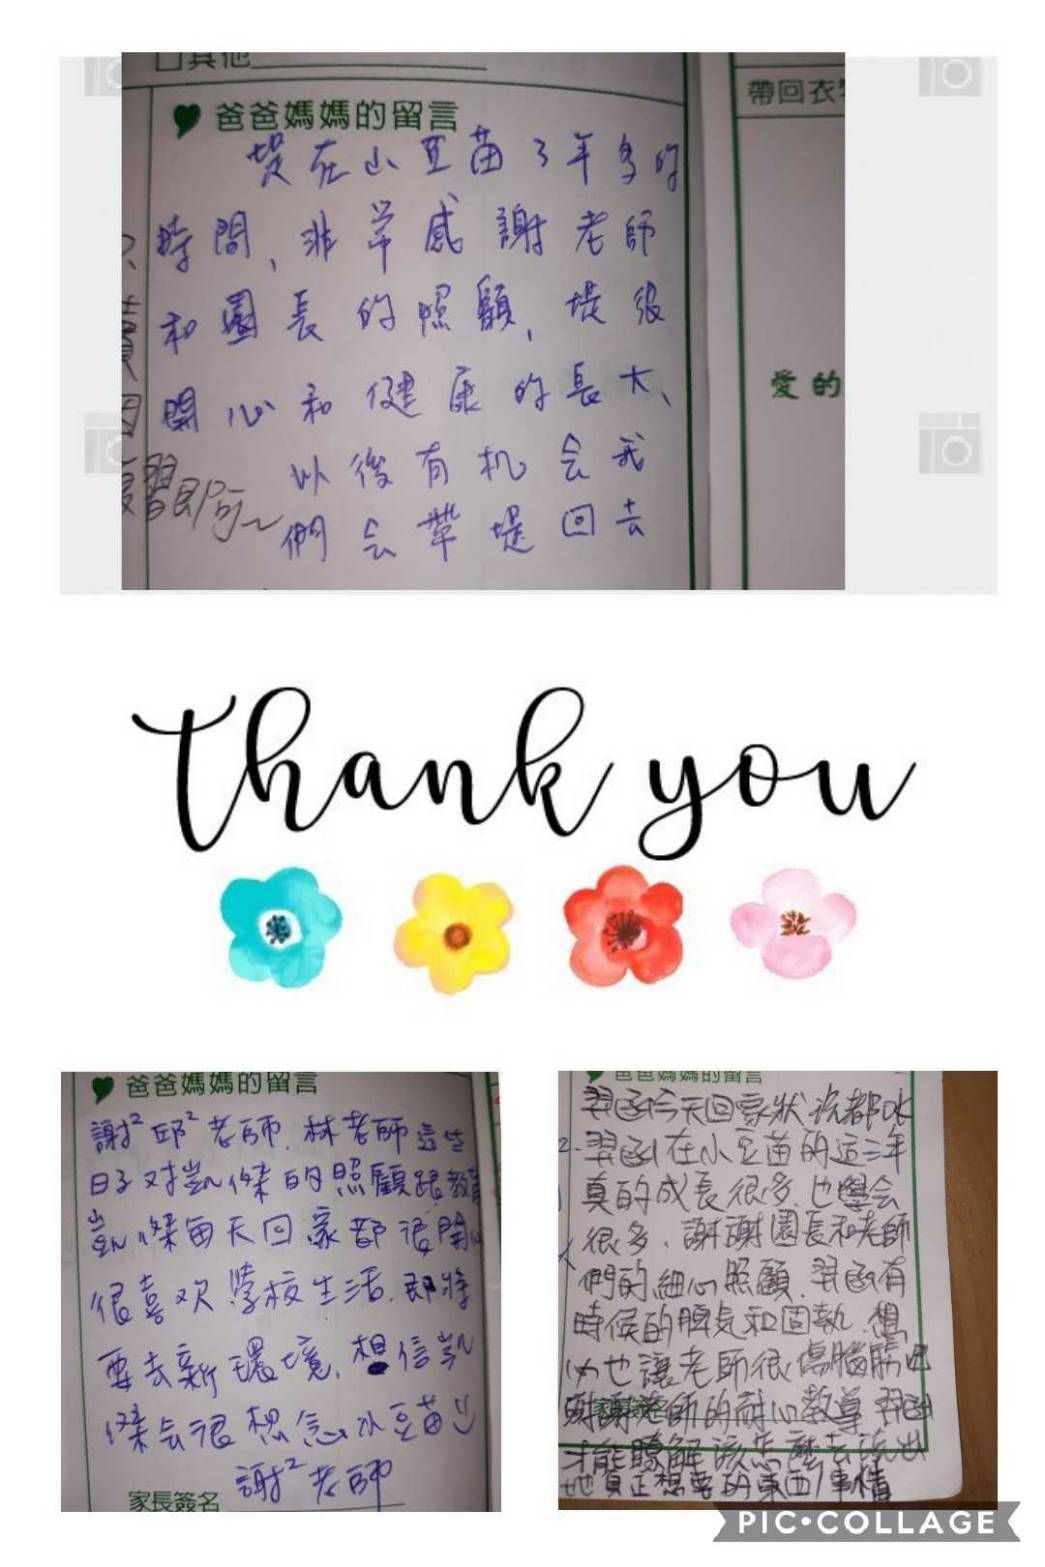 口其他
爸爸媽媽的留言
堤在小豆苗3年多的
時間,非常感謝老師
和園長的照顧,堤很
開心和健康的長大、
以後有机会我
們会帶堤回去
習即可~
帶回衣
愛的
Thank you
爸爸媽媽的留言
謝²邱²老師.林老師這些
日子对凱傑的照顧跟教育
凱傑每天回家都很開心
很喜欢學校生活.即將
要去新環境,想信凱
傑会很想念小豆苗
謝²老師
家長簽名
爸爸媽媽的留言
羿函今天回家狀況都ok
羿函在小豆苗的這三年
真的成長很多.也學会
很多.謝謝園長和老師
們的細心照顧.羿函有
時候的脾気和固執.想
必也讓老師很傷腦筋吧
謝謝老師的耐心教導 羿函
才能瞭解該怎麼去說出
他真正想要的東西/事情
PIC•COLLAGE